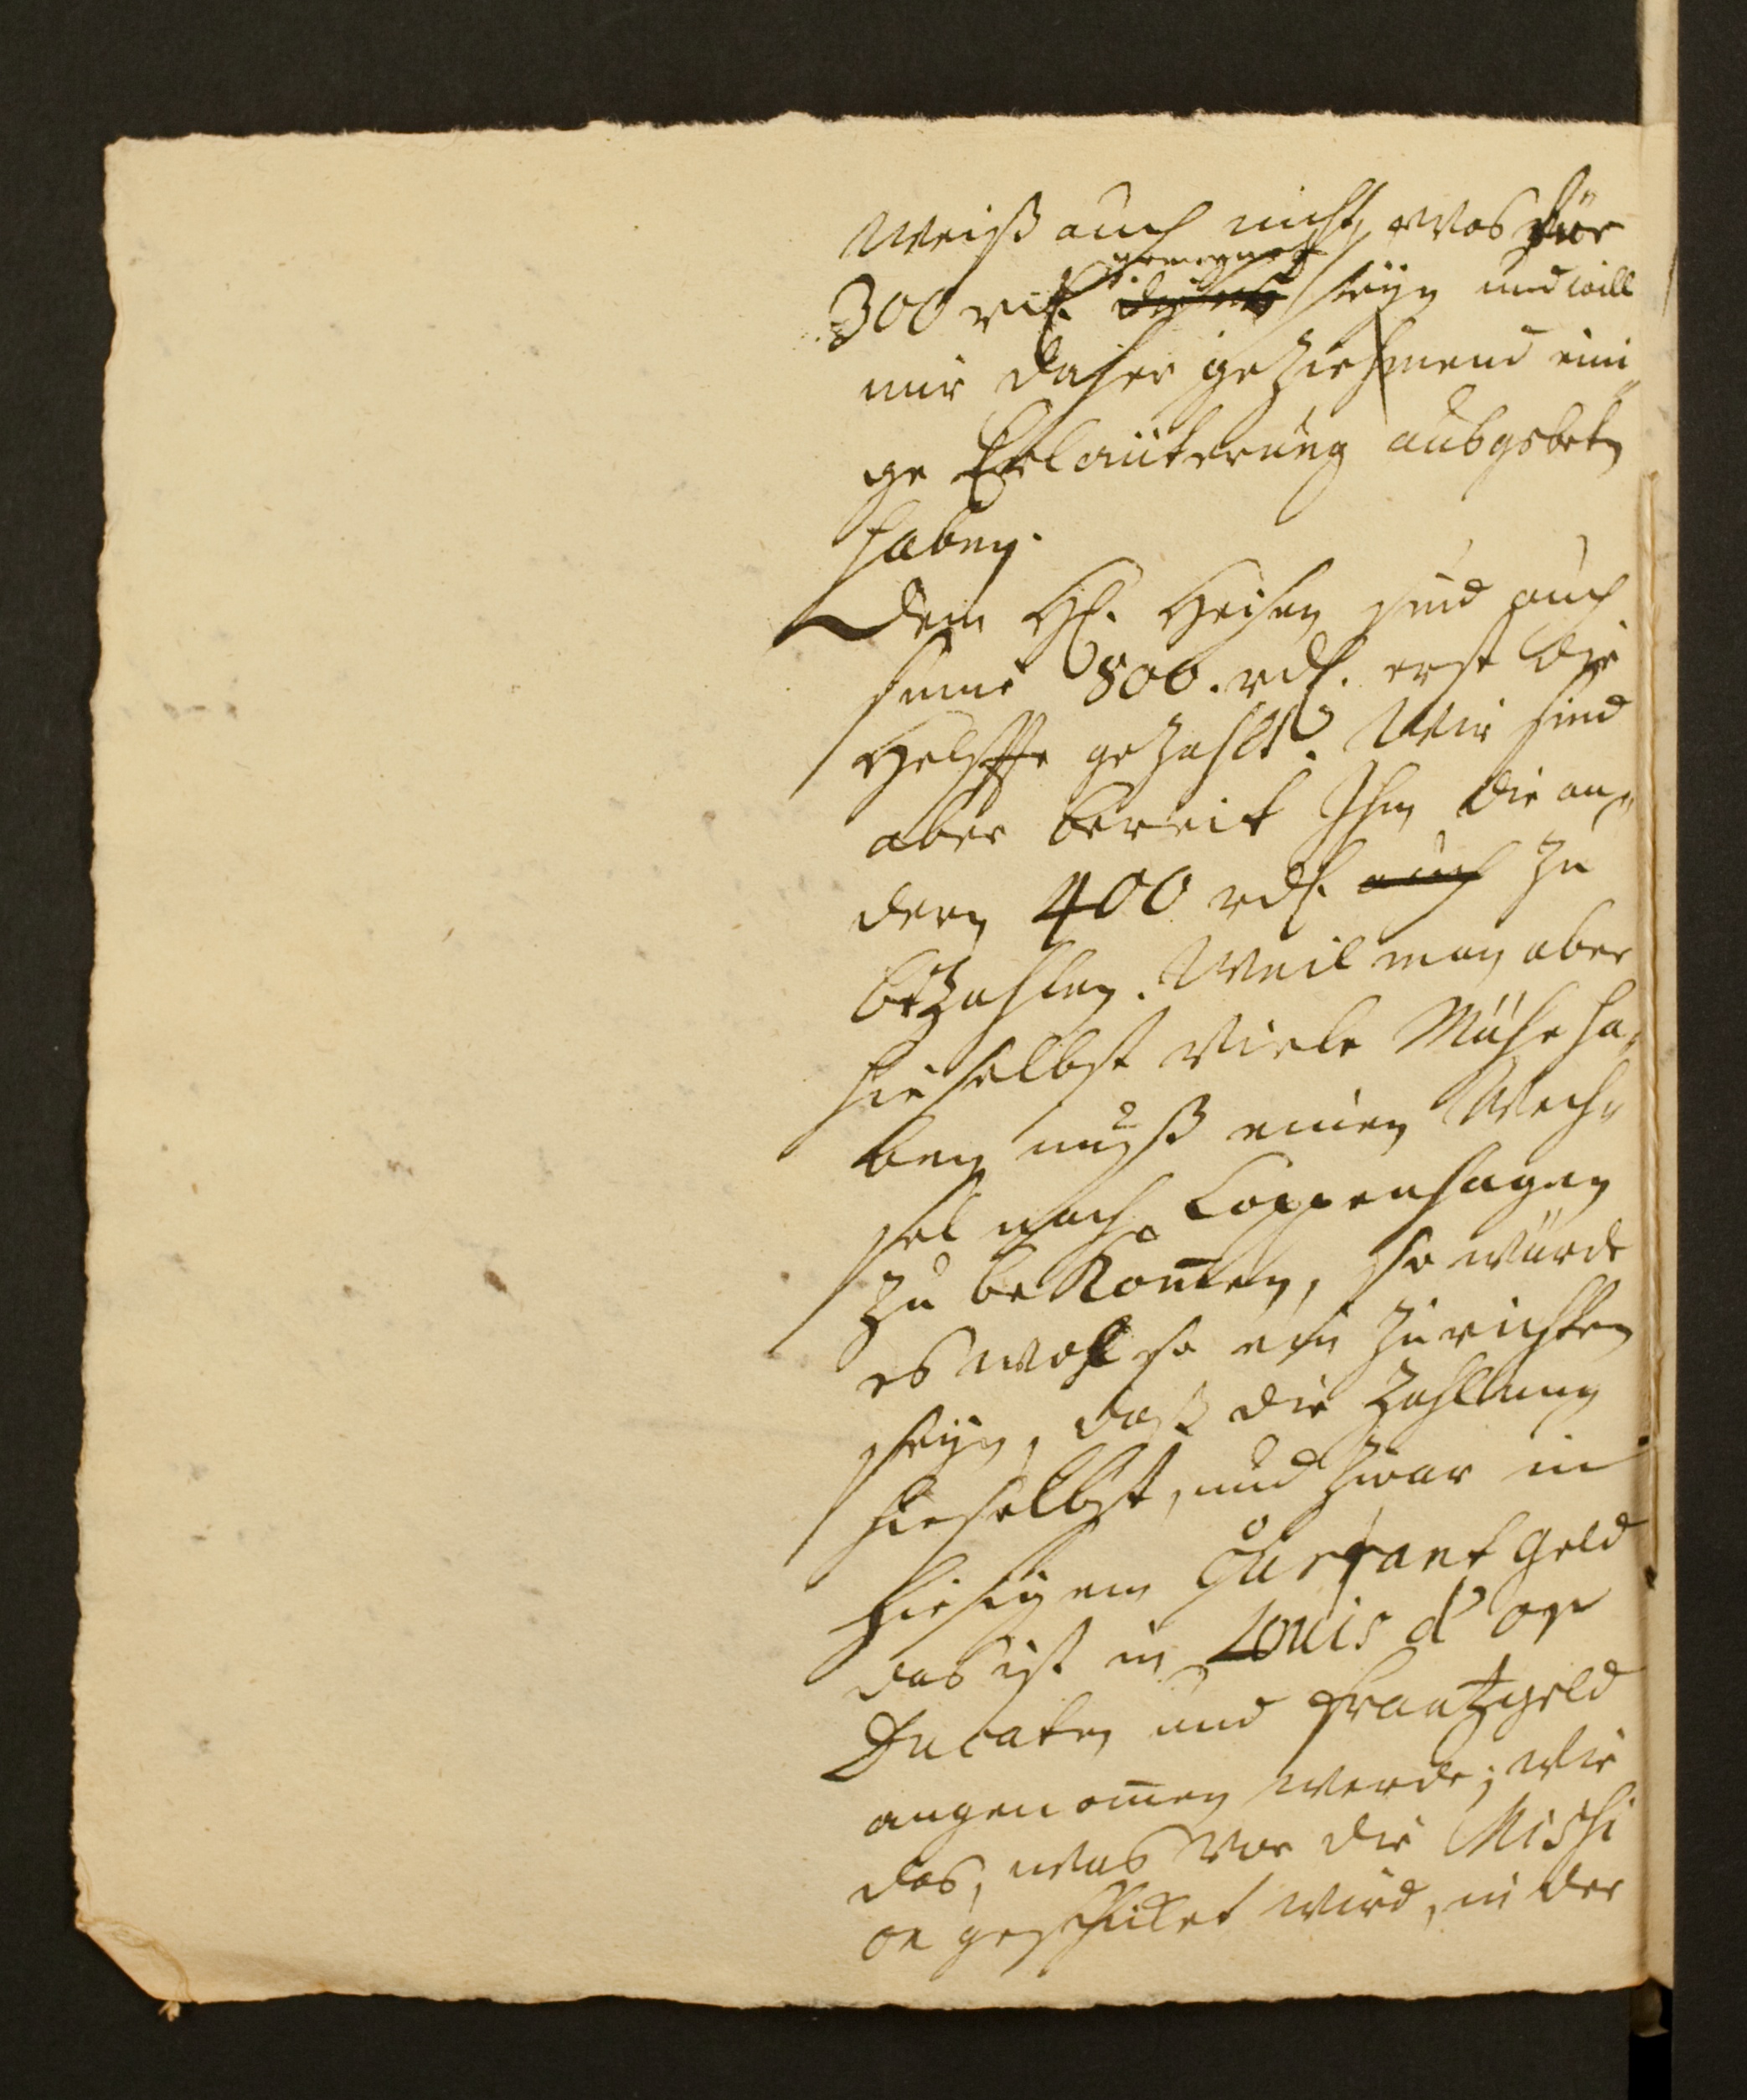 Weiß auch nicht, was für
gemeynet
300 rth. seyn und will
mir daher geziehmend eini
ge Erläuterung ausgebeten
haben.
Dem H. sind auch
seine 800. rth. erst die
Helffte gezahlt. Wir sind
aber bereit Ihm die an„
dern 400 rth. auch zu
bezahlen. Weil man aber
hieselbst viele Mühe ha„
ben muß einen Wech„
sel nach Coppenhagen
zu bekom̄en, so würde
es wohl so ein zu richten
seyn, daß die Zahlung
hieselbst, und zwar in
hiesigem Curfant geld
das ist in Louis d'or
Ducaten und Frantzgeld
angenom̄en werde; wie
das, was vor die Missi
on geschicket wird, in der